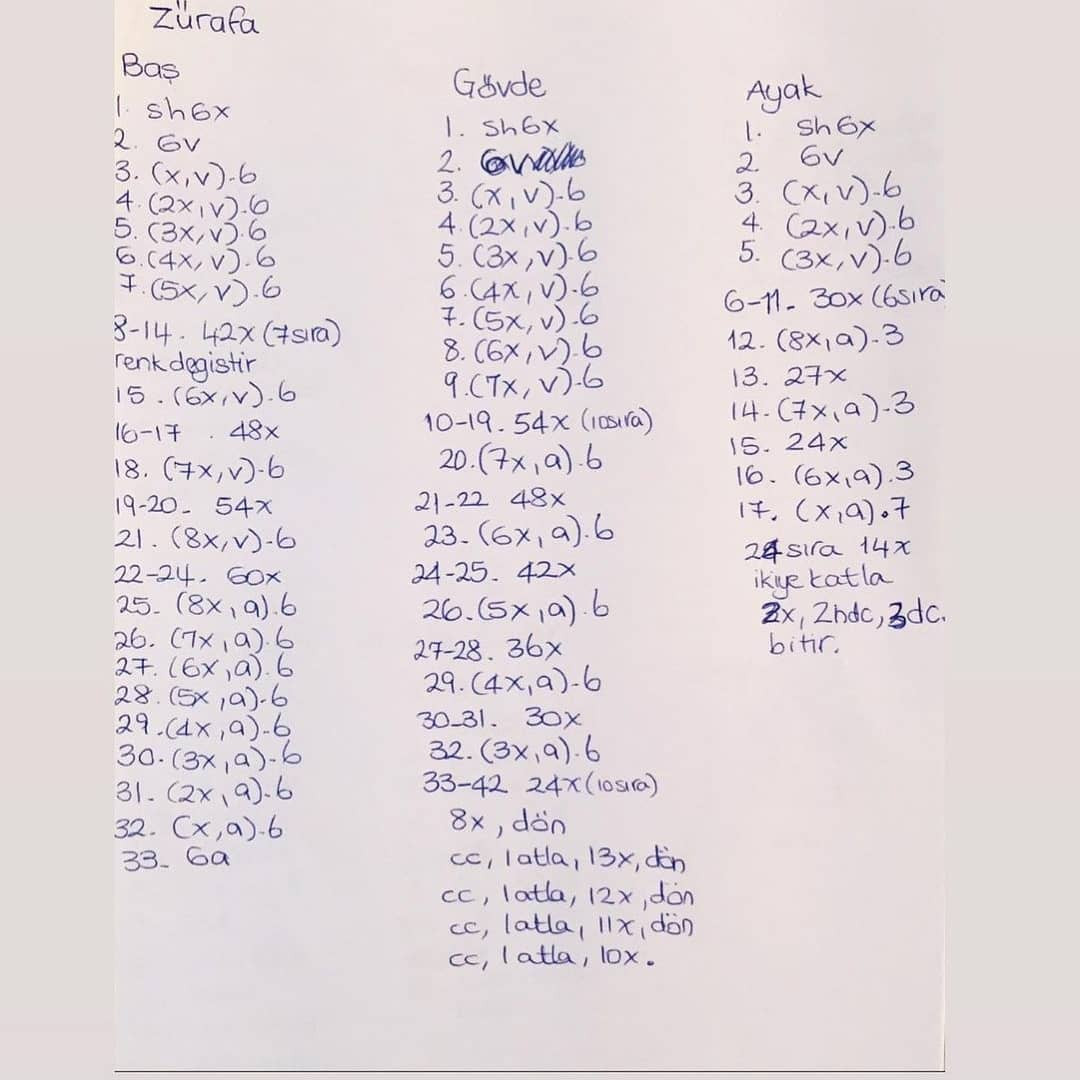 Zürafa
Baş
1. sh6x
2. 6v
3. (x,v)-6
4. (2x,v).6
5. (3x,v).6
6. (4x,v)-6
7. (5x,v).6
8-14. 42x (7sıra)
renk degistir
15. (6x,v).6
16-17. 48x
18. (7x,v)-6
19-20- 54x
21. (8x,v)-6
22-24. 60x
25- (8x,a).6
26. (7x,a).6
27. (6x,a).6
28. (5x,a)-6
29. (4x,a)-6
30. (3x,a)-6
31- (2x,a)-6
32- (x,a)-6
33- 6a
Gövde
1. sh6x
2. 6v
3. (x,v)-6
4. (2x,v)-6
5. (3x,v)-6
6. (4x,v)-6
7. (5x,v).6
8. (6x,v).6
9. (7x,v)-6
10-19. 54x (10sıra)
20. (7x,a).6
21-22 48x
23- (6x,a).6
24-25. 42x
26. (5x,a).6
27-28. 36x
29. (4x,a)-6
30-31. 30x
32. (3x,a).6
33-42 24x (10sıra)
8x, dön
cc, 1 atla, 13x, dön
cc, 1atla, 12x, dön
cc, 1atla, 11x, dön
cc, 1 atla, 10x.
Ayak
1. sh6x
2. 6v
3. (x,v)-6
4. (2x,v)-6
5. (3x,v)-6
6-11- 30x (6sıra
12. (8x,a)-3
13. 27x
14- (7x,a)-3
15. 24x
16. (6x,a).3
17. (x,a).7
sıra 14x
ikiye katla
2x, 2hdc, 3dc.
bitir.